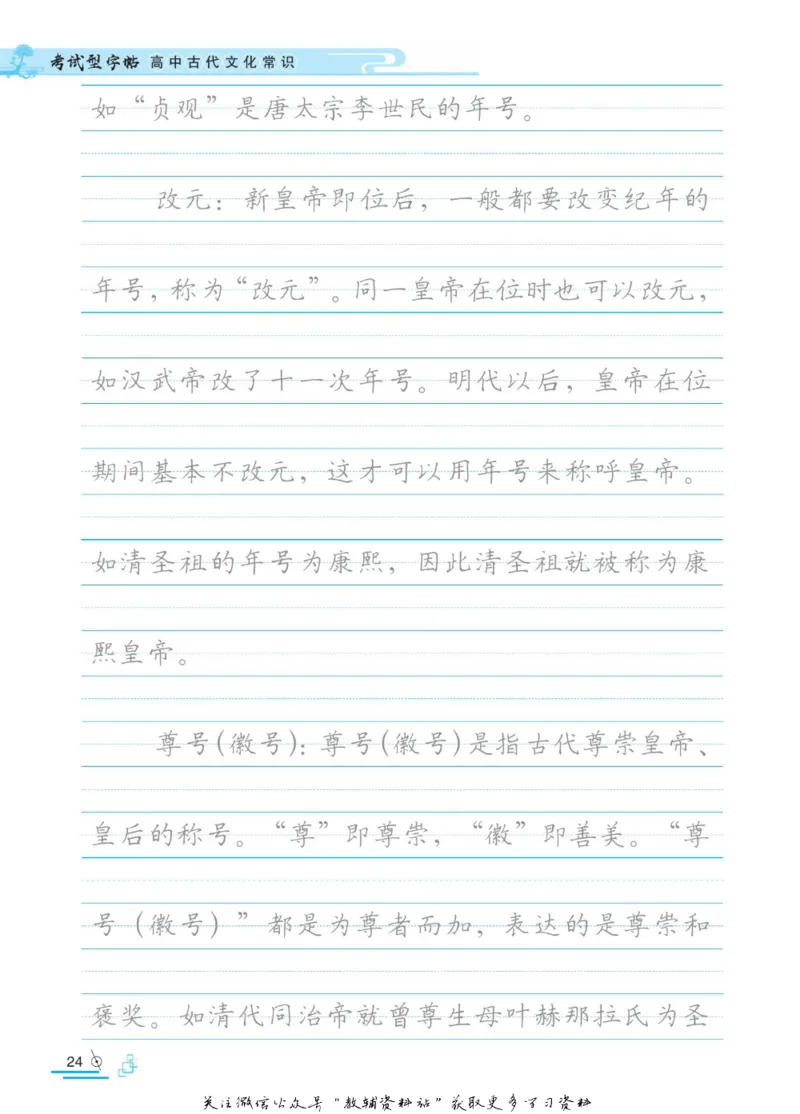 考试型字帖 高中古代文化常识
如“贞观”是唐太宗李世民的年号。
改元：新皇帝即位后，一般都要改变纪年的
年号，称为“改元”。同一皇帝在位时也可以改元，
如汉武帝改了十一次年号。明代以后，皇帝在位
期间基本不改元，这才可以用年号来称呼皇帝。
如清圣祖的年号为康熙，因此清圣祖就被称为康
熙皇帝。
尊号(徽号)：尊号(徽号)是指古代尊崇皇帝、
皇后的称号。“尊”即尊崇，“徽”即善美。“尊
号（徽号）”都是为尊者而加，表达的是尊崇和
褒奖。如清代同治帝就曾尊生母叶赫那拉氏为圣
24
关注微信公众号“教辅资料站”获取更多学习资料